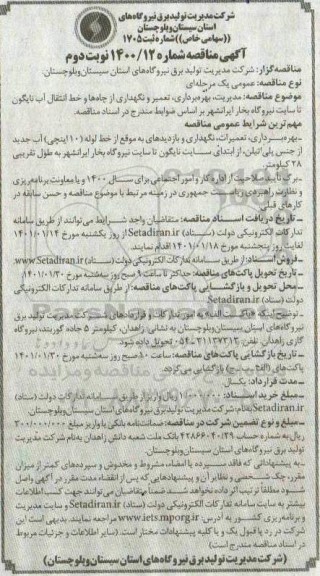 شرکت مدیریت تولید برق نیروگاه‌های
استان سیستان وبلوچستان
((سهامی خاص)) شماره ثبت ۱۷۰۵
آگهی مناقصه شماره ۱۴۰۰/۱۲ نوبت دوم
مناقصه‌گزار: شرکت مدیریت تولید برق نیروگاه‌های استان سیستان وبلوچستان
نوع مناقصه: عمومی یک مرحله‌ای
موضوع مناقصه: مدیریت، بهره‌برداری، تعمیر و نگهداری از چاه‌ها و خط انتقال آب نایگون
تا سایت نیروگاه بخار ایرانشهر بر اساس ضوابط مندرج در اسناد مناقصه.
مهم‌ترین شرایط عمومی مناقصه
ـ بهره‌برداری، تعمیرات، نگهداری و بازدیدهای به موقع از خط لوله (۱۰ اینچی) آب جدید
از جنس پلی‌اتیلن، از ابتدای سایت نایگون تا سایت نیروگاه بخار ایرانشهر به طول تقریبی
۲۸ کیلومتر
ـ برگه تایید صلاحیت از اداره کار و امور اجتماعی برای سال ۱۴۰۰ و یا معاونت برنامه‌ریزی
و نظارت راهبردی ریاست جمهوری در زمینه مرتبط با موضوع مناقصه و حسن سابقه در
کارهای قبلی
ـ تاریخ دریافت اسناد مناقصه: متقاضیان واجد شرایط می‌توانند از طریق سامانه
تدارکات الکترونیکی دولت (ستاد) Setadiran.ir از روز یکشنبه مورخ ۱۴۰۱/۰۱/۱۴
لغایت روز پنجشنبه مورخ ۱۴۰۱/۰۱/۱۸ اقدام نمایند.
ـ فروش اسناد: از طریق سامانه تدارکات الکترونیکی دولت (ستاد) www.Setadiran.ir
ـ تاریخ تحویل پاکت‌های مناقصه: حداکثر تا ساعت ۹ صبح روز سه‌شنبه مورخ ۱۴۰۱/۰۱/۳۰
ـ محل تحویل و بازگشایی پاکت‌های مناقصه: از طریق سامانه تدارکات الکترونیکی
دولت (ستاد) Setadiran.ir
ـ توضیح اینکه پاکت الف به امور تدارکات و قراردادهای شرکت مدیریت تولید برق
نیروگاه‌های استان سیستان وبلوچستان به نشانی زاهدان، کیلومتر ۵ جاده گوربند، نیروگاه
گازی زاهدان تلفن: ۳۱۱۳۷۳۱۳-۰۵۴ تحویل داده شود.
ـ تاریخ بازگشایی پاکت‌های مناقصه: ساعت ۱۰ صبح روز سه‌شنبه مورخ ۱۴۰۱/۰۱/۳۰
پاکت‌های (الف، ب، ج) بازگشایی می‌گردد.
ـ مدت قرارداد: یکسال
ـ مبلغ خرید اسناد: ریال واریز از طریق سامانه تدارکات دولت (ستاد)
Setadiran.ir به نام شرکت مدیریت تولید برق نیروگاه‌های استان سیستان وبلوچستان
ـ مبلغ و نوع تضمین شرکت در مناقصه: ضمانت‌نامه بانکی یا واریز مبلغ ۳۰۰/۰۰۰/۰۰۰
ریال به شماره حساب بانک ملت شعبه دانش زاهدان به‌نام شرکت مدیریت
تولید برق نیروگاه‌های استان سیستان وبلوچستان.
ـ به پیشنهاداتی که فاقد سپرده یا امضاء، مشروط و مخدوش و سپرده‌های کمتر از میزان
مقرر، چک شخصی و نظایر آن و پیشنهادهایی که پس از انقضاء مدت مقرر در آگهی واصل
شود مطلقا ترتیب اثر داده نخواهد شد. ضمنا متقاضیان می‌توانند جهت کسب اطلاعات
بیشتر به سایت سامانه تدارکات الکترونیکی دولت (ستاد) Setadiran.ir و سایت مدیریت
و برنامه‌ریزی کشور به آدرس: www.iets.mporg.ir مراجعه نمایند. بدیهی است این
شرکت در رد یا قبول یک و یا کلیه پیشنهادات مختار است. (سایر اطلاعات و جزئیات مربوط
در اسناد مناقصه مندرج است)
(شرکت مدیریت تولید برق نیروگاه‌های استان سیستان وبلوچستان)